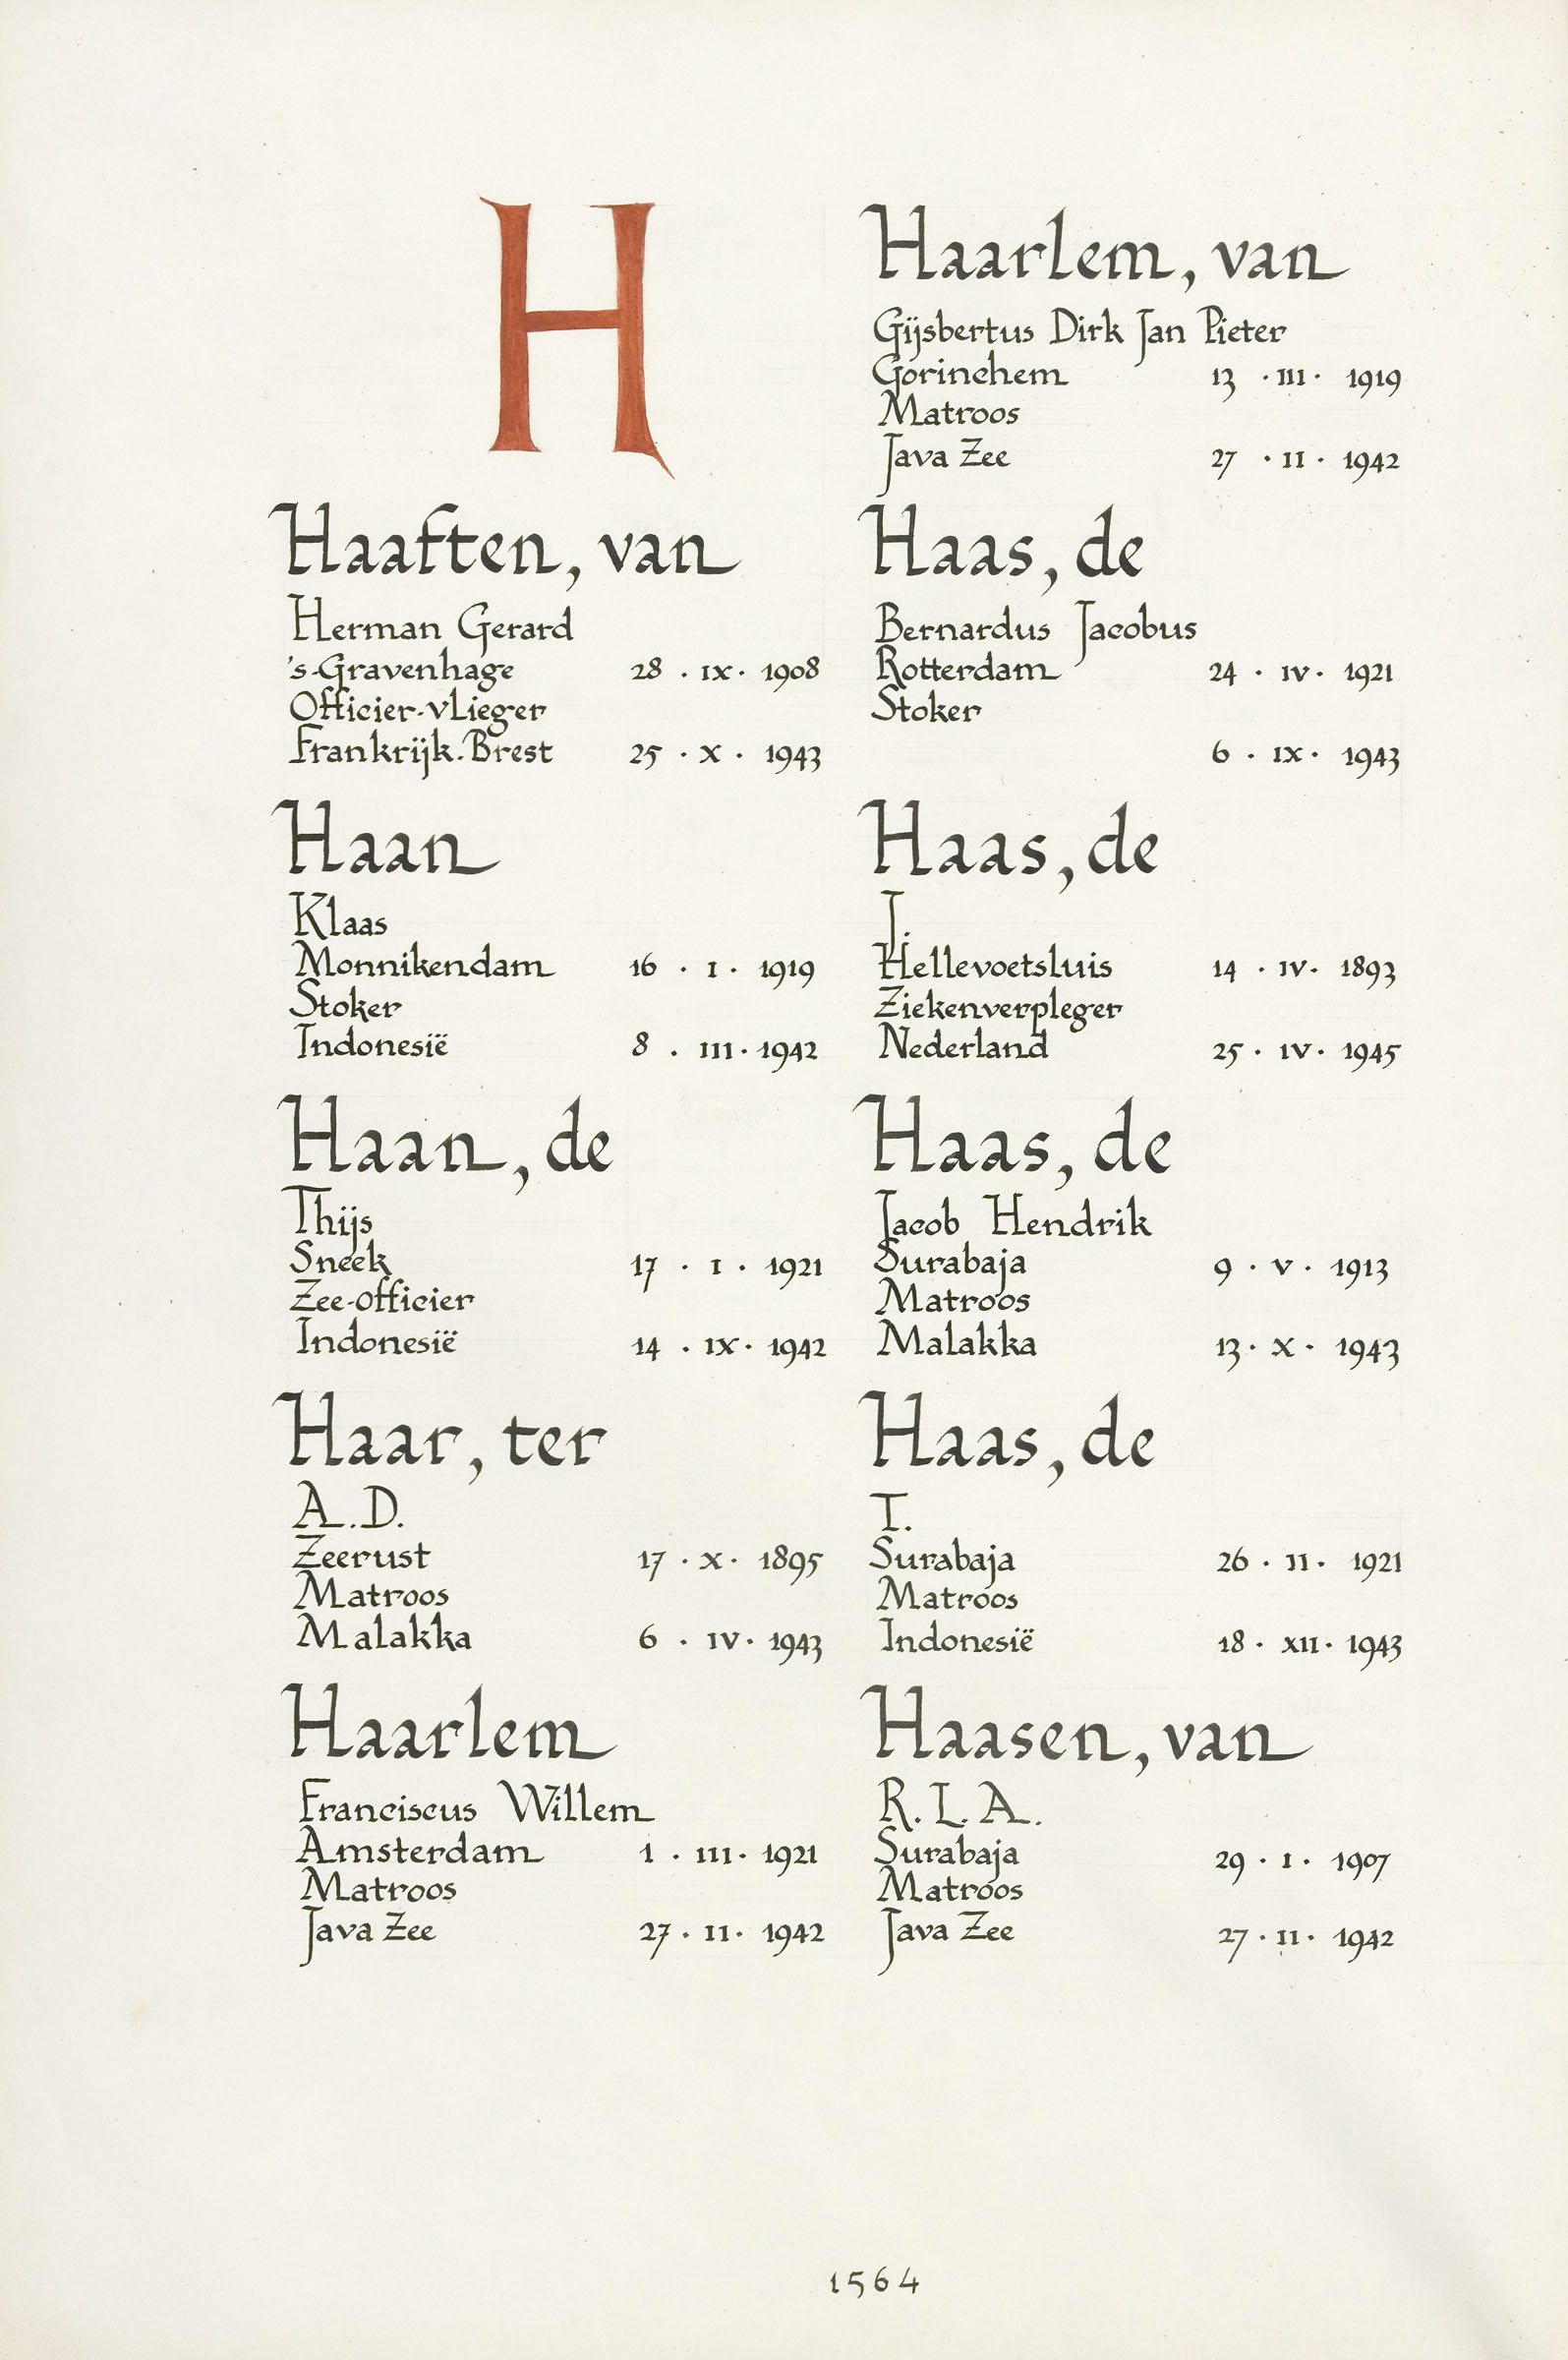 H
Haaften, van
Herman Gerard
's-Gravenhage 28 · IX · 1908
Officier-vlieger
Frankrijk-Brest 25 · X · 1943
Haan
Klaas
Monnikendam 16 · I · 1919
Stoker
Indonesië 8 · III · 1942
Haan, de
Thijs
Sneek 17 · I · 1921
Zee-officier
Indonesië 14 · IX · 1942
Haar, ter
A.D.
Zeerust 17 · X · 1895
Matroos
Malakka 6 · IV · 1943
Haarlem
Franciscus Willem
Amsterdam 1 · III · 1921
Matroos
Java Zee 27 · II · 1942
Haarlem, van
Gijsbertus Dirk Jan Pieter
Gorinchem 13 · III · 1919
Matroos
Java Zee 27 · II · 1942
Haas, de
Bernardus Jacobus
Rotterdam 24 · IV · 1921
Stoker
6 · IX · 1943
Haas, de
J.
Hellevoetsluis 14 · IV · 1893
Ziekenverpleger
Nederland 25 · IV · 1945
Haas, de
Jacob Hendrik
Surabaja 9 · V · 1913
Matroos
Malakka 13 · X · 1943
Haas, de
T.
Surabaja 26 · II · 1921
Matroos
Indonesië 18 · XII · 1943
Haasen, van
R.L.A.
Surabaja 29 · I · 1907
Matroos
Java Zee 27 · II · 1942
1564